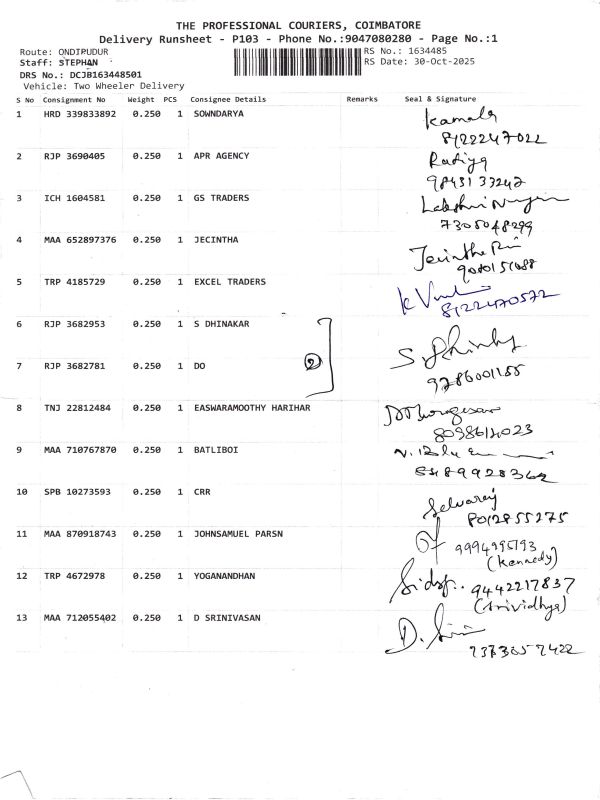 THE PROFESSIONAL COURIERS, COIMBATORE
Delivery Runsheet - P103 - Phone No.:9047080280 - Page No.:1
Route: ONDIPUDUR RS No.: 1634485
Staff: STEPHAN RS Date: 30-Oct-2025
DRS No.: DCJB163448501
Vehicle: Two Wheeler Delivery
S No Consignment No Weight PCS Consignee Details Remarks Seal & Signature
1 HRD 339833892 0.250 1 SOWNDARYA Kamala
8122247022
2 RJP 3690405 0.250 1 APR AGENCY Radiya
9843133242
3 ICH 1604581 0.250 1 GS TRADERS Lakshmi
7305048299
4 MAA 652897376 0.250 1 JECINTHA
5 TRP 4185729 0.250 1 EXCEL TRADERS
8122470572
6 RJP 3682953 0.250 1 S DHINAKAR
7 RJP 3682781 0.250 1 DO 2
8 TNJ 22812484 0.250 1 EASWARAMOOTHY HARIHAR
9 MAA 710767870 0.250 1 BATLIBOI
8489928362
10 SPB 10273593 0.250 1 CRR Selvaraj
8012855275
11 MAA 870918743 0.250 1 JOHNSAMUEL PARSN
(Kennedy)
12 TRP 4672978 0.250 1 YOGANANDHAN 9442217837
(Srividhya)
13 MAA 712055402 0.250 1 D SRINIVASAN